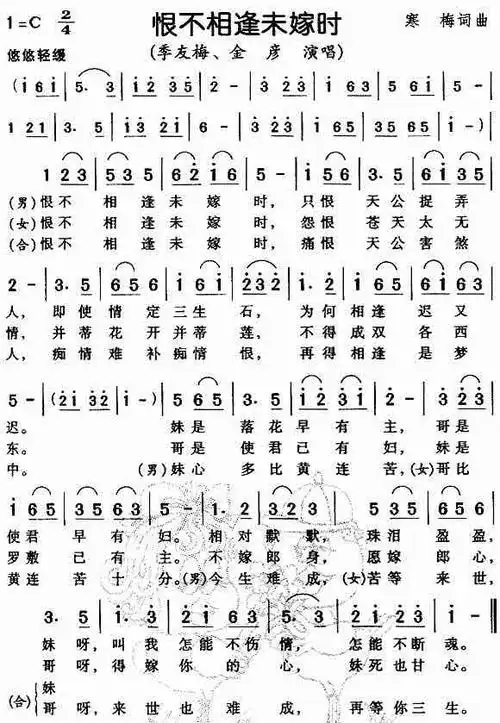 1=C 2/4 恨不相逢未嫁时 寒 梅词曲
悠悠轻缓 (季友梅、金 彦 演唱)
(i 6i | 5. 3 | i2 35 | i2 35 | 6 - | 3 23 |
1 21 | 3. 5 | i3 2i | 6 - | 3 23 | 1 65 | 35 65 | i -) |
1 23 | 53 5 | 62 i6 | 5 - | i 56 | 3. 5 | 6i 35 |
(男)恨不 相 逢 未 嫁 时, 只恨 天公 捉弄
(女)恨不 相 逢 未 嫁 时, 怨恨 苍天 太无
(合)恨不 相 逢 未 嫁 时, 痛恨 天公 害煞
2 - | 3. 5 | 65 65 | i 6i | 232 | i 65 | 35 65 | 3 2 |
人, 即使 情 定 三生 石, 为何 相逢 迟又
情, 并蒂 花 开 并蒂 莲, 不得 成双 各西
人, 痴情 难 补 痴情 恨, 再得 相逢 是梦
5 - | (2i 32 | i -) | 5. 3 | 23 2i | 3 23 | i 2 |
迟。 妹是 落花 早有 主, 哥是
东。 哥是 使君 已有 妇, 妹是
中。 (男)妹心 多比 黄连 苦,(女)哥比
i 65 | 35 65 | 3 23 | 1 23 | 56 5 | 35 35 | 6i 65 |
使君 早有 妇。相对 默默, 珠泪 盈盈,
罗敷 已有 主。不嫁 郎身, 愿嫁 郎心,
黄连 苦十 分。(男)今生 难成,(女)苦等 来世,
妹 呀, 叫 我 怎能 不伤 情, 怎能 不断 魂。
哥 呀, 得 嫁 你 的 心, 妹死 也甘 心。
(合) 妹
哥 呀, 来 世 也 难 成, 再等 你三 生。